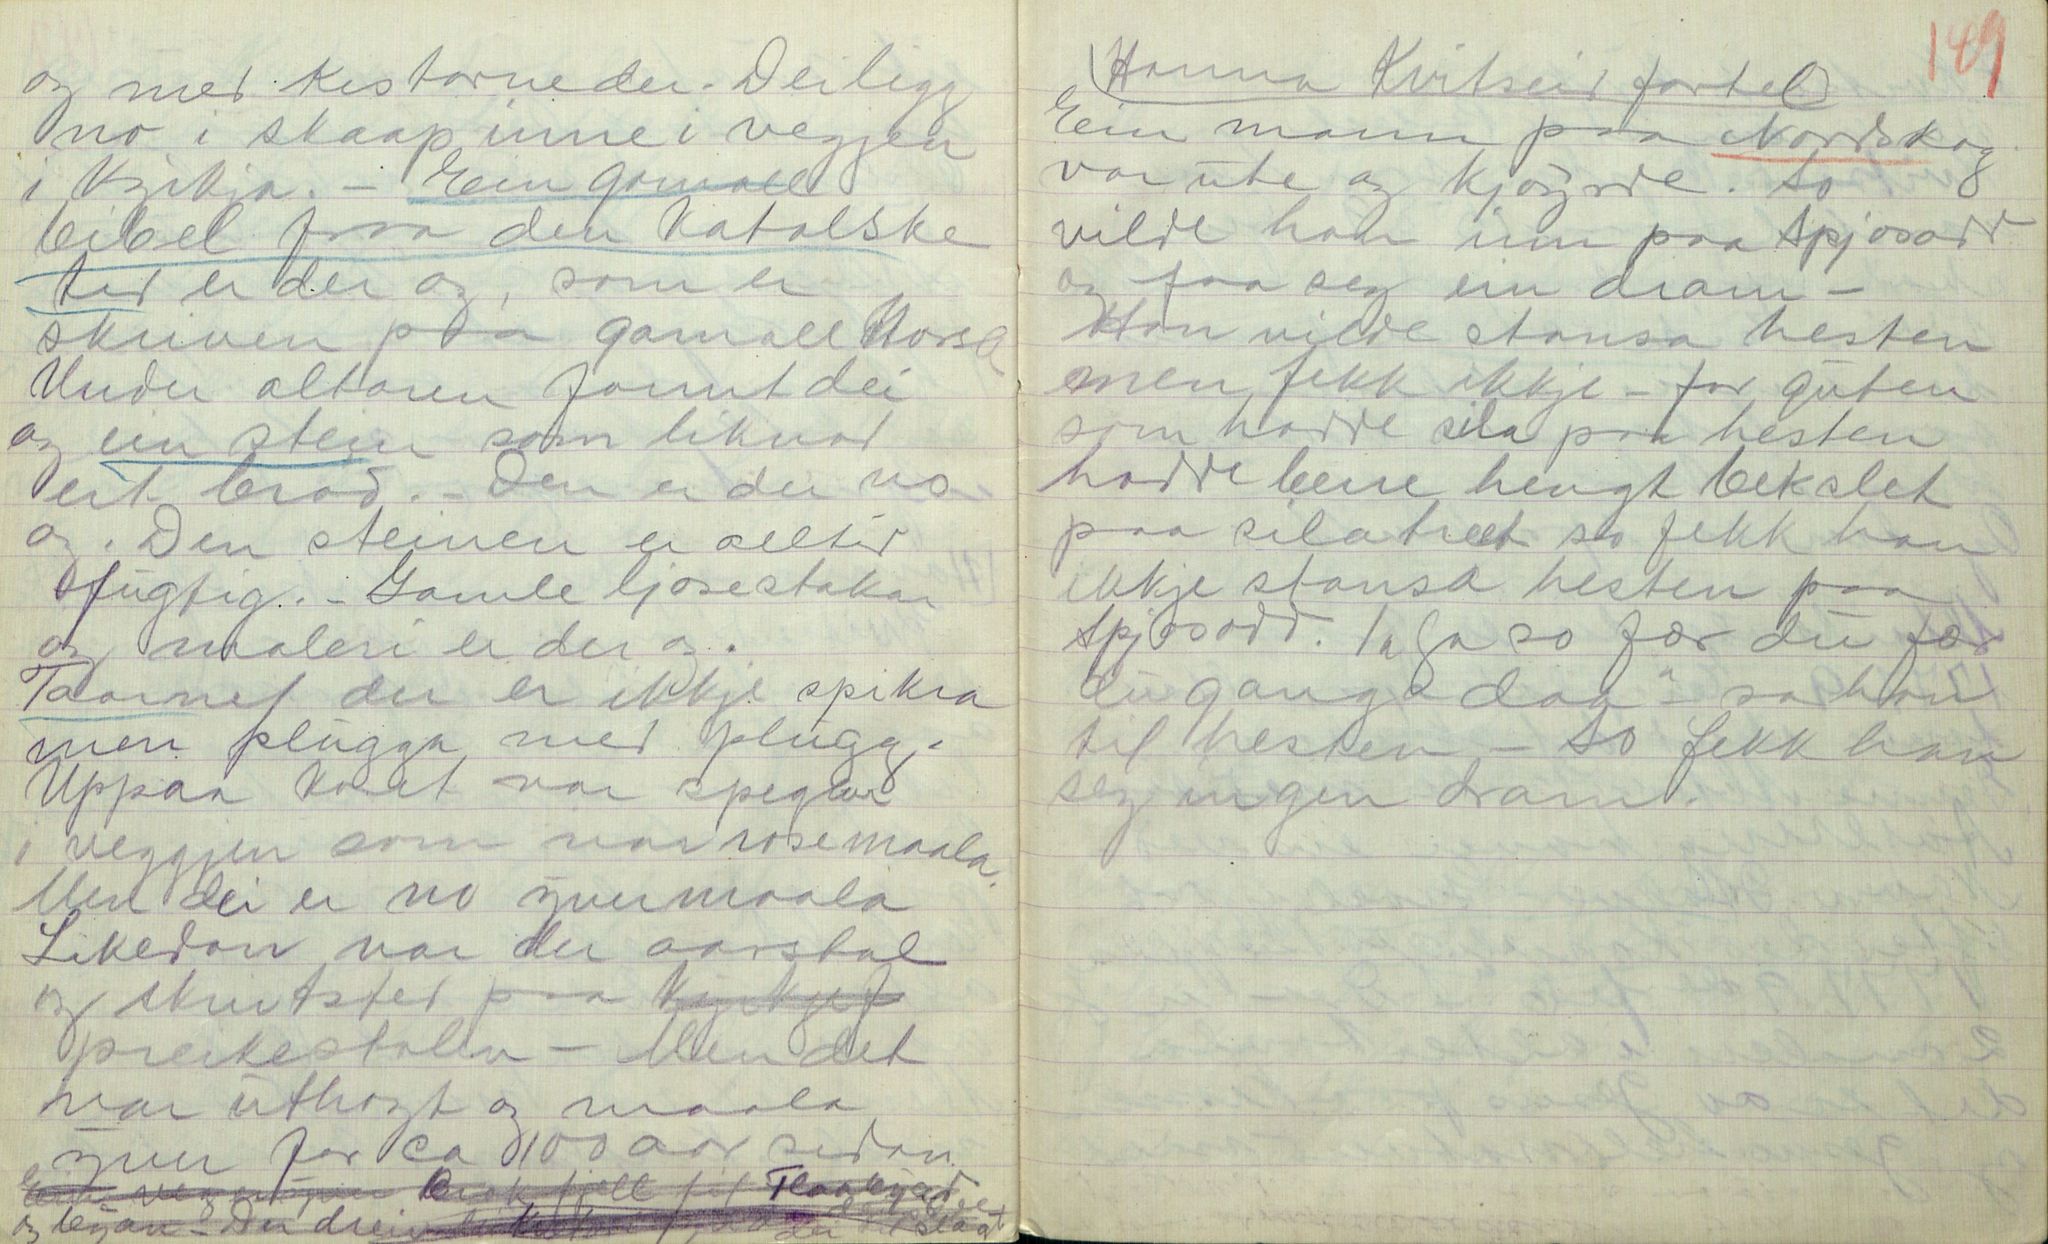 og med kistorne der. Dei ligg
no i skaap inne i veggjen
i Kyrkja. – Ein gamall
bibel fraa den katolske
tid er der og, som er
skriven paa gamall Norsk
Under altaren fannt dei
og ein stein som liknad
eit brød. – Den er der no
og. Den steinen er alltid
fugtig. – Gamle ljosestakar
og maleri er der og.
Taarnet der er ikkje spikra
men plugga med plugg.
Uppaa koret var speglar
i veggjen som var rosemaala.
Men dei er no yvermaala
Likedan var der aarstal
og skrift paa Kyrkje
preikestolen – Men det
var uthogt og maala
yver for ca 100 aar sidan.
og byan – Der
149
Hanna Kvitseid fortel
Ein mann paa Nordskog
var ute og kjøyrde. So
vilde han inn paa Spjosodd
og faa seg ein dram –
Han vilde stansa hesten
men fekk ikkje – for guten
som hadde sila paa hesten
hadde berre hengt bekslet
paa silatreet so fekk han
ikkje stansa hesten paa
Spjosodd. "Ja so fær du fær
du ganga daa" – sa han
til hesten – So fekk han
seg ingen dram.